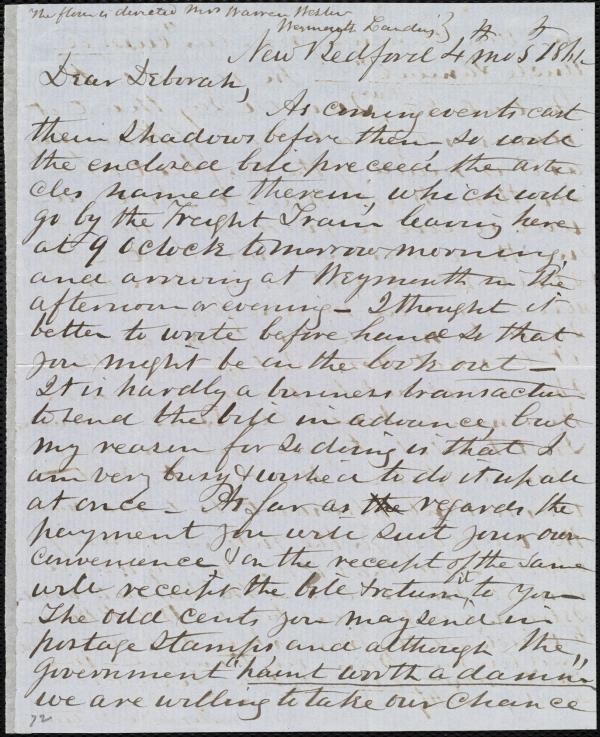 The flour is directed Mrs Warren Weston
Weymouth Landing
New Bedford 4th mo 5th 1861
Dear Deborah,
As coming events cast
their shadows before them, so will
the enclosed bill preceed the arti
cles named therein, which will
go by the Freight Train leaving here
at 9 O clock tomorrow morning,
and arriving at Weymouth in the
afternoon or evening - I thought it
better to write before hand so that
you might be on the look out -
It is hardly a business transaction
to send the bill in advance, but
my reason for so doing is that I
am very busy & wished to do it up all
at once - As far as the regards the
payment you will suit your own
convenience, & on the receipt of the same
will receipt the bill & return it to you -
The odd cents you may send in
postage stamps and although the
government "haint worth a damn"
we are willing to take our chance
72